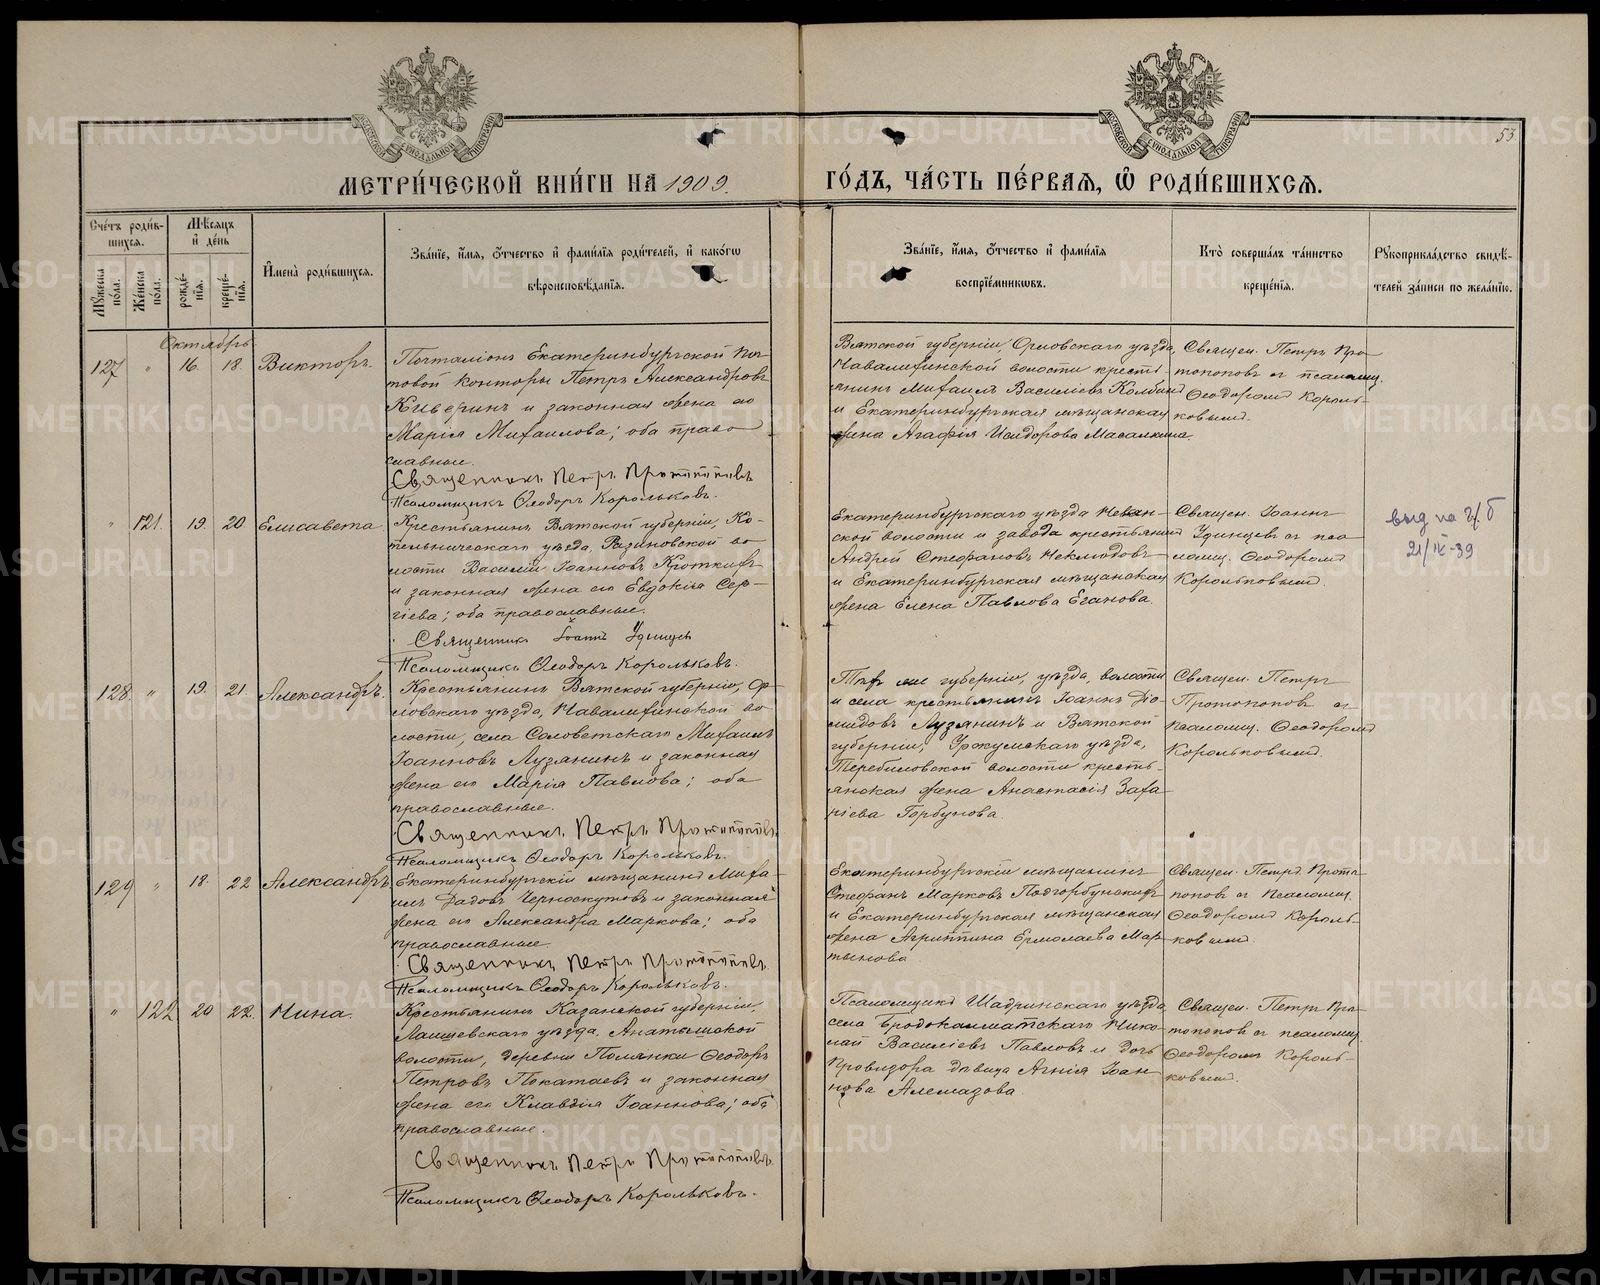 МЕТРИ́ЧЕСКОЙ КНИ́ГИ НА 1909.
ГО́ДЪ, ЧА́СТЬ ПЕ́РВАЯ, Ѡ РОДИ́ВШИХСЯ.
53.
Сче́тъ роди́вшихся.
Мꙋжеска по́ла.
Же́нска по́ла.
Мѣ́сяцъ и де́нь
рожде́нїя.
креще́нїя.
Имена̀ роди́вшихся.
Зва́нїе, и́мя, о́тчество и фами́лїя роди́телей, и како́гѡ
вѣроисповѣ́данїя.
Зва́нїе, и́мя, о́тчество и фами́лїя
воспрїе́мникѡвъ.
Кто̀ соверша́лъ та́инство
креще́нїя.
Рꙋкоприкла́дство свидѣ́-
телей за́писи по жела́нїю.
Октябрь
127 " 16. 18. Викторъ.
Почталіонъ Екатеринбургской поч-
товой конторы Петръ Александровъ
Киверинъ и законная жена его
Марія Михаилова; оба право-
славные.
Священникъ Петръ Протопоповъ
Псаломщикъ Ѳеодоръ Корольковъ.
Вятской губерніи, Орловскаго уѣзда,
волости кресть-
янинъ Михаилъ Василіевъ
и Екатеринбургская мѣщанская
жена Агафія Исидорова Масалкина.
Священ. Петръ Про-
топоповъ съ псаломщ.
Ѳеодоромъ Король-
ковымъ.
" 121. 19. 20. Елисавета.
Крестьянинъ Вятской губерніи, Ко-
тельническаго уѣзда, во-
лости Василій Іоанновъ Кроткихъ
и законная жена его Евдокія Сер-
гіева; оба православные.
Священникъ Іоаннъ Удинцевъ
Псаломщикъ Ѳеодоръ Корольковъ.
Екатеринбургскаго уѣзда Невьян-
ской волости и завода крестьянинъ
Андрей Стефановъ Неклюдовъ
и Екатеринбургская мѣщанская
жена Елена Павлова Еганова.
Священ. Іоаннъ
Удинцевъ съ пса-
ломщ. Ѳеодоромъ
Корольковымъ.
21/IX-39
128. " 19. 21. Александръ.
Крестьянинъ Вятской губерніи, Ор-
ловскаго уѣзда, во-
лости, села Соловетскаго Михаилъ
Іоанновъ Лузянинъ и законная
жена его Марія Павлова; оба
православные.
Священникъ Петръ Протопоповъ
Псаломщикъ Ѳеодоръ Корольковъ.
губерніи, уѣзда, волости
и села крестьянинъ Іоаннъ Діо-
мидовъ Лузянинъ и Вятской
губерніи, Уржумскаго уѣзда,
Теребиловской волости кресть-
янская жена Анастасія Заха-
ріева Горбунова.
Священ. Петръ
Протопоповъ съ
псаломщ. Ѳеодоромъ
Корольковымъ.
129 " 18. 22 Александръ
Екатеринбургскій мѣщанинъ Миха-
илъ Черноскутовъ и законная
жена его Александра Маркова; оба
православные.
Священникъ Петръ Протопоповъ.
Псаломщикъ Ѳеодоръ Корольковъ.
Екатеринбургскій мѣщанинъ
Стефанъ Марковъ Подгорбунскихъ
и Екатеринбургская мѣщанская
жена Агриппина Ермолаева Мар-
тынова
Священ. Петръ Прото-
поповъ съ Псаломщ.
Ѳеодоромъ Король-
ковымъ.
" 122 20 22. Нина.
Крестьянинъ Казанской губерніи,
Лаишевскаго уѣзда,
волости, деревни Полянки Ѳеодоръ
Петровъ Покатаевъ и законная
жена его Клавдія Іоаннова; оба
православные.
Священникъ Петръ Протопоповъ.
Псаломщикъ Ѳеодоръ Корольковъ.
Псаломщикъ Шадринскаго уѣзда,
села Бродокалматскаго Нико-
лай Василіевъ Павловъ и дочь
Провизора дѣвица Агнія Іоан-
нова Алемазова.
Священ. Петръ Про-
топоповъ съ псаломщ.
Ѳеодоромъ Король-
ковымъ.